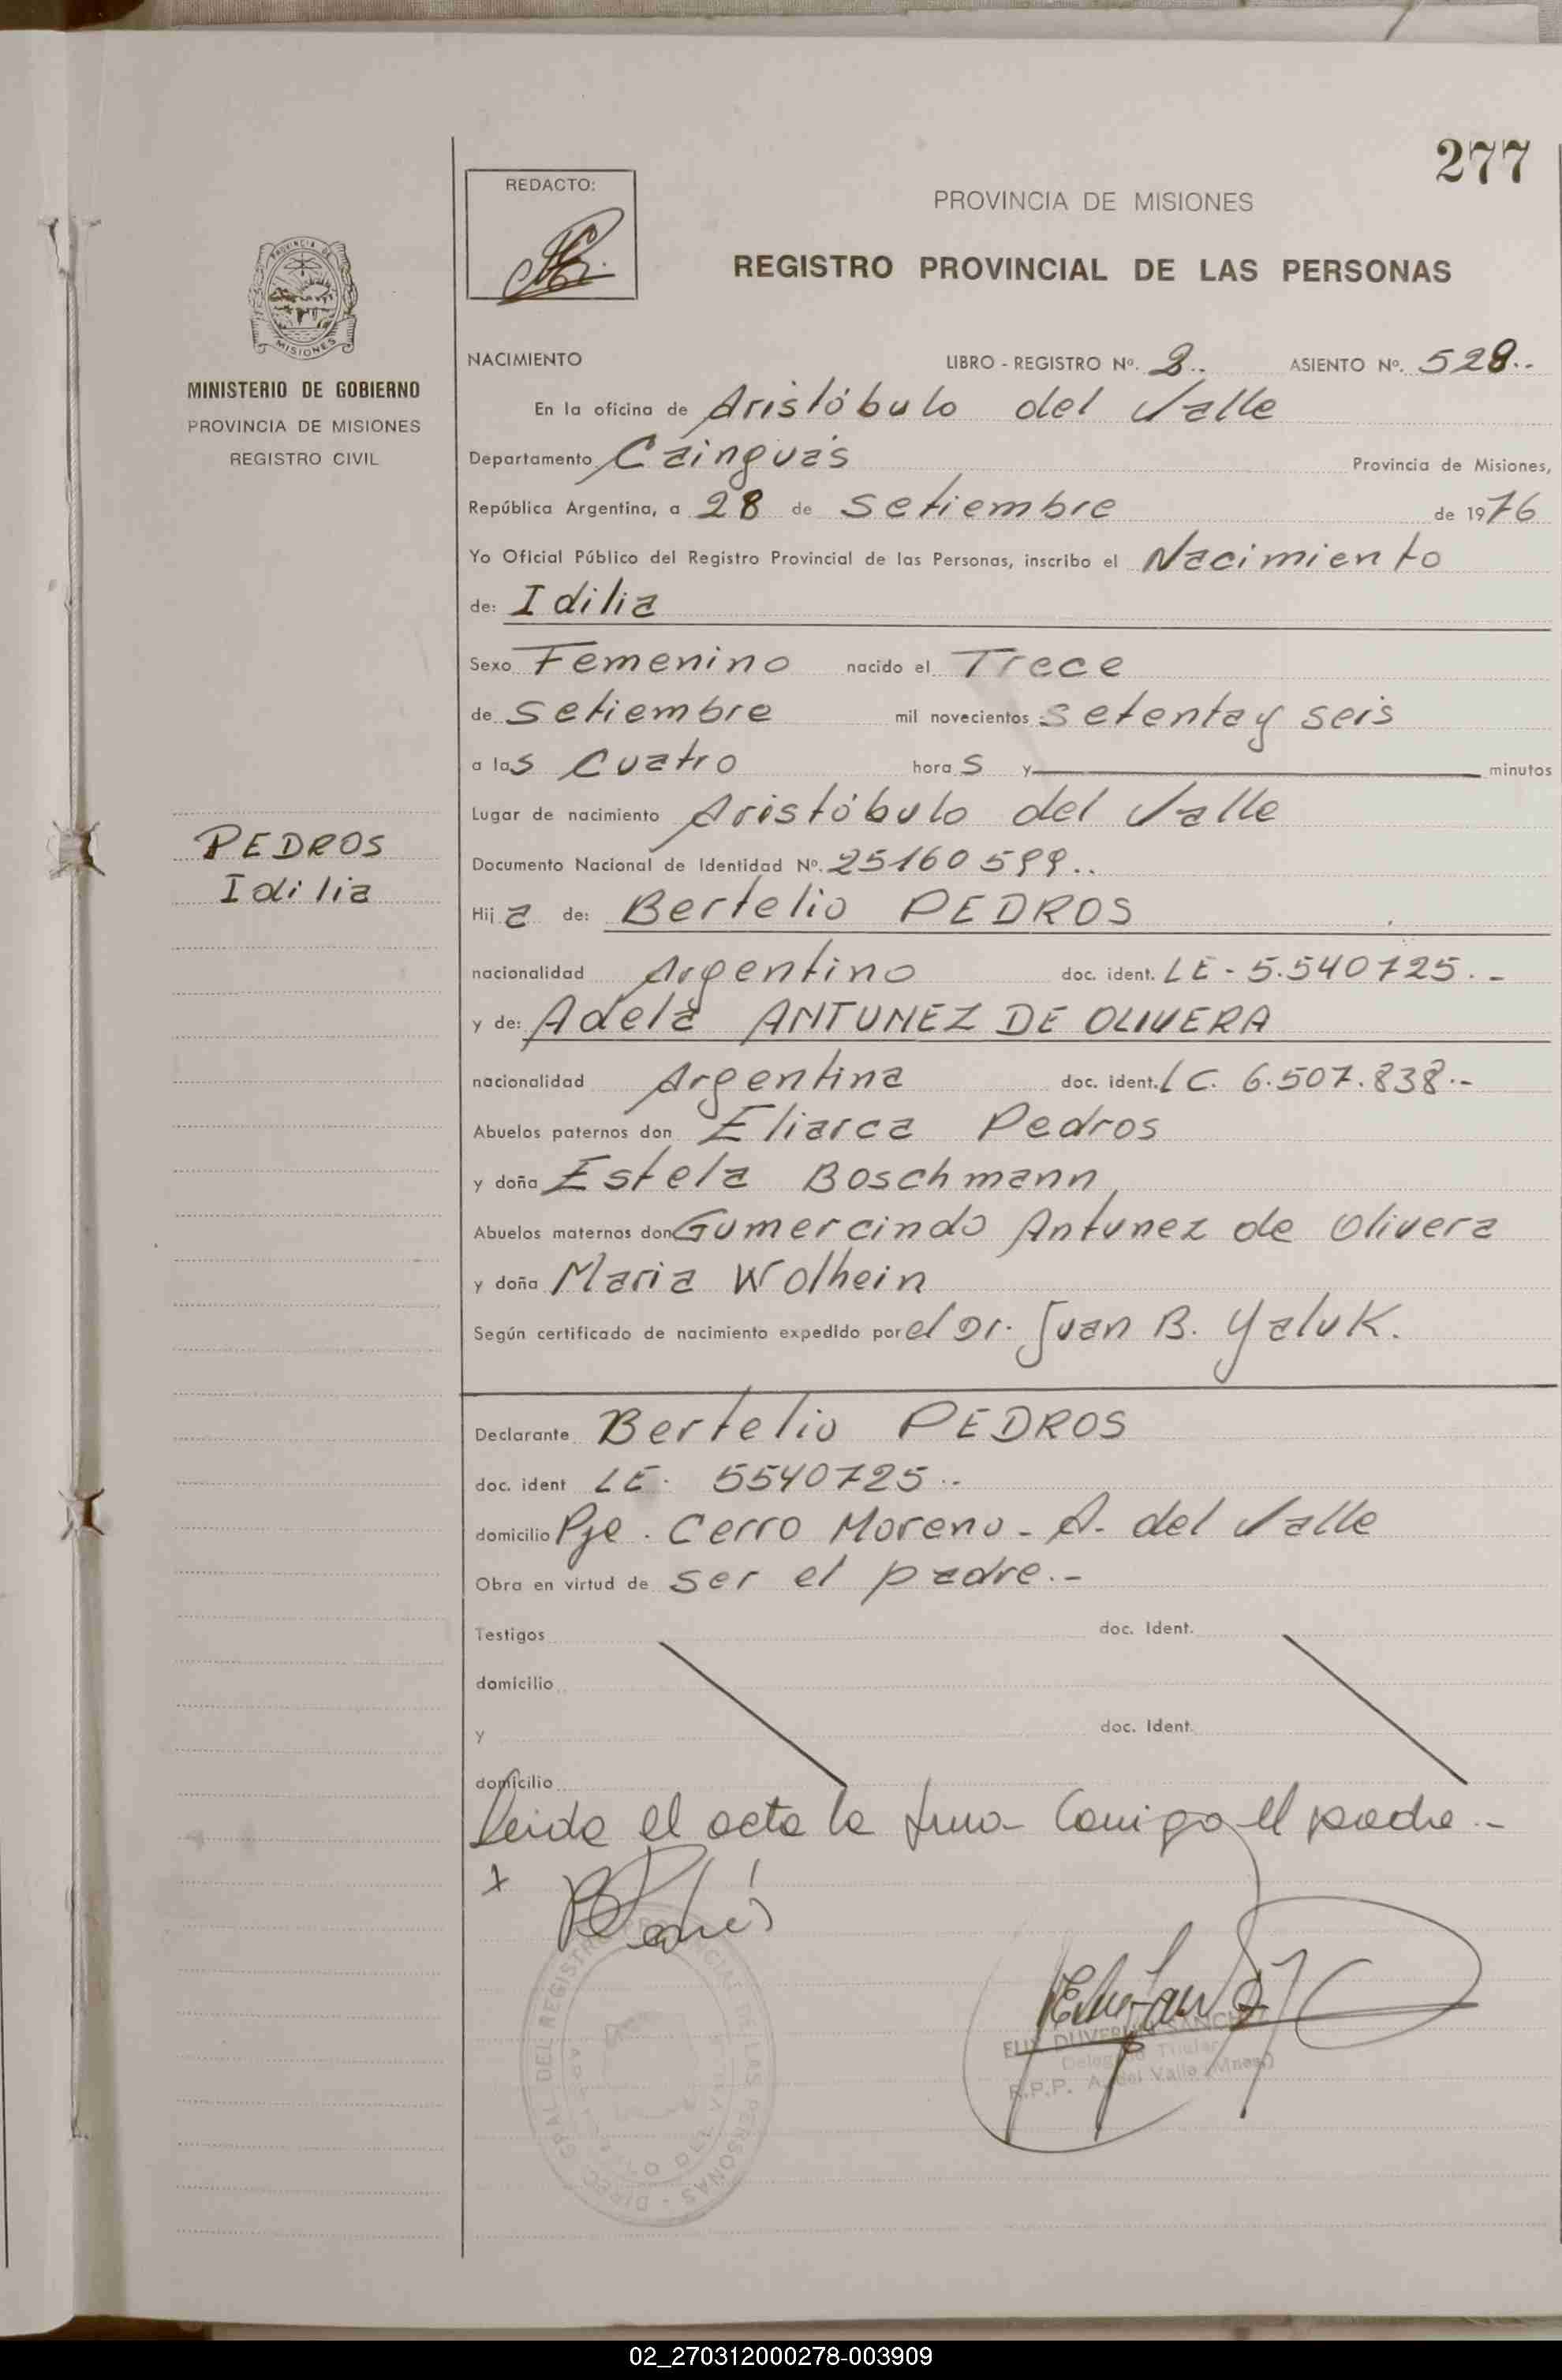 277
REDACTO:
PROVINCIA DE MISIONES
REGISTRO PROVINCIAL DE LAS PERSONAS
PROVINCIA DE
MISIONES
MINISTERIO DE GOBIERNO
PROVINCIA DE MISIONES
REGISTRO CIVIL
NACIMIENTO LIBRO - REGISTRO Nº. 2.. ASIENTO Nº. 528..
En la oficina de Aristóbulo del Valle
Departamento Cainguás Provincia de Misiones,
República Argentina, a 28 de Setiembre de 1976
Yo Oficial Público del Registro Provincial de las Personas, inscribo el Nacimiento
de: Idilia
Sexo Femenino nacido el Trece
de Setiembre mil novecientos setenta y seis
a las cuatro horas y minutos
Lugar de nacimiento Aristóbulo del Valle
PEDROS
Idilia
Documento Nacional de Identidad Nº. 25160599..
Hija de: Bertelio PEDROS
nacionalidad Argentino doc. ident. LE - 5.540725.-
y de: Adela ANTUNEZ DE OLIVERA
nacionalidad Argentina doc. ident. LC. 6.507.838.-
Abuelos paternos don Eliarca Pedros
y doña Estela Boschmann
Abuelos maternos don Gumercindo Antunez de Olivera
y doña Maria Wolhein
Según certificado de nacimiento expedido por el Dr. Juan B. Yaluk.
Declarante Bertelio PEDROS
doc. ident LE. 5540725..
domicilio Pje. Cerro Moreno - A. del Valle
Obra en virtud de ser el padre.-
Testigos doc. Ident.
domicilio
y doc. Ident.
domicilio
Leida el acta la firma conmigo el padre.-
x
DIREC. GRAL DEL REGISTRO PROVINCIAL DE LAS PERSONAS
DUVER SANCHEZ
Delegado Titular
R.P.P. A. del Valle (Mnes)
02_270312000278-003909